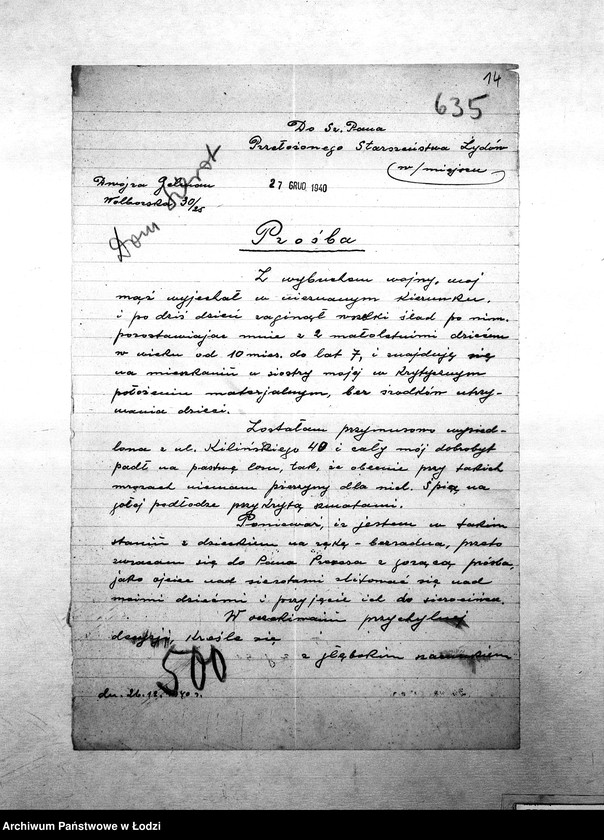 14
635
Do Sz. Pana
Przełożonego Starszeństwa Żydów
w/miejscu
Dwojra Gelman
27 GRUD 1940
Wolborska 30/25
Dom
Prośba
Z wybuchem wojny, mój
mąż wyjechał w nieznanym kierunku.
i po dziś dzień zaginął wszelki ślad po nim.
pozostawiając mnie z 2 małoletnimi dziećmi
w wieku od 10 mies. do lat 7, i znajduję się
na mieszkaniu u siostry mojej w krytycznym
położeniu materjalnym, bez środków utrzy-
mania dzieci.
Zostałam przymusowo wysied-
lona z ul. Kilińskiego 40 i cały mój dobobyt
padł na pastwę losu, tak, że obecnie przy takich
mrozach niemam pierzyny dla nich. Śpią na
gołej podłodze przykrytą szmatami.
Ponieważ, iż jestem w takim
staniu z dzieckiem na rękę - bezradna, przeto
zwracam się do Pana Prezesa z gorącą prośbą,
jako ojciec nad sierotami zlitować się nad
moimi dziećmi i przyjęcie ich do sierocińca.
W oczekiwaniu przychylnej
decyzji, kreślę się
z głębokim szacunkiem
500
dn. 26.12. 1940 r.
Archiwum Państwowe w Łodzi